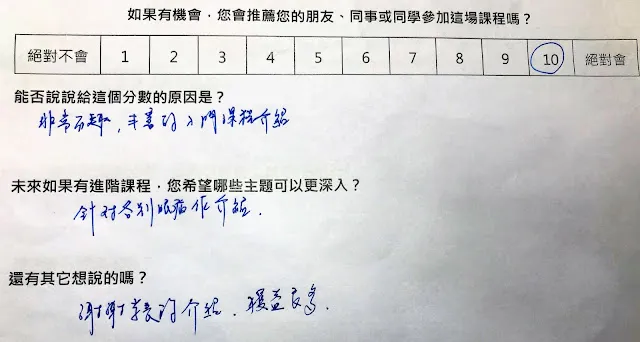 如果有機會，您會推薦您的朋友、同事或同學參加這場課程嗎？
絕對不會 1 2 3 4 5 6 7 8 9 10 絕對會
能否說說給這個分數的原因是？
非常有趣，丰富的入門課程介紹
未來如果有進階課程，您希望哪些主題可以更深入？
針對各別眼病作介紹．
還有其它想說的嗎？
謝謝 的介紹．獲益良多．